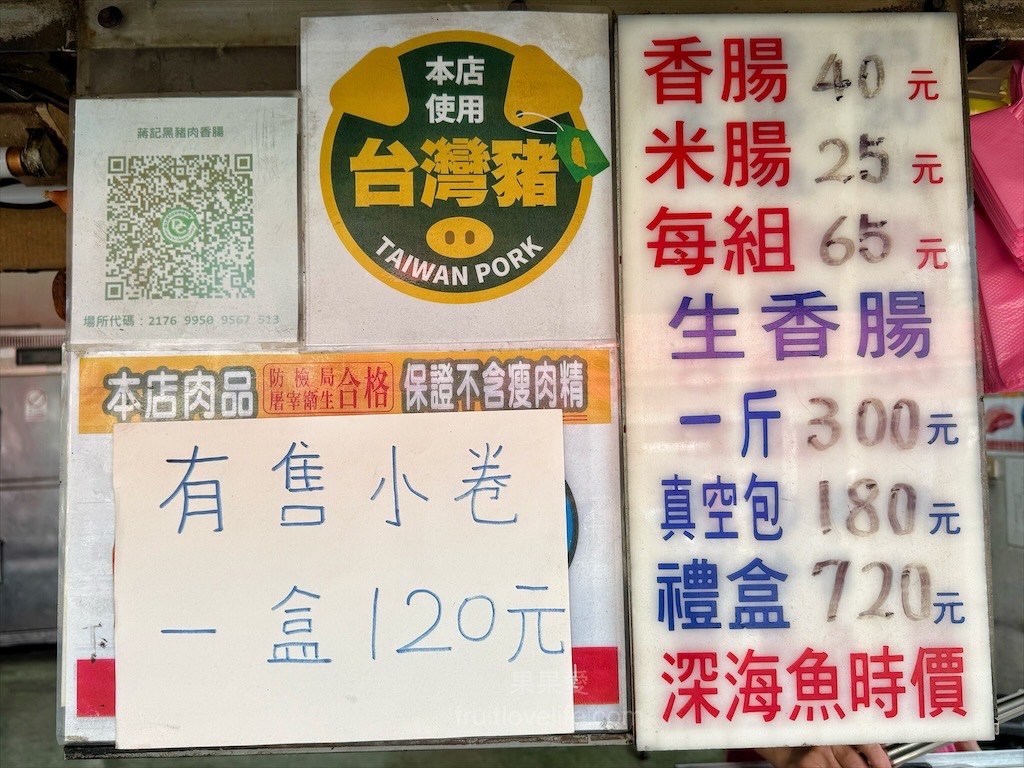 蔣記黑豬肉香腸
場所代碼：2176 9950 9567 513
本店
使用
台灣豬
TAIWAN PORK
本店肉品
防檢局
屠宰衛生
合格
保證不含瘦肉精
有售小卷
一盒120元
香腸 40 元
米腸 25 元
每組 65 元
生香腸
一斤 300元
真空包 180元
禮盒 720元
深海魚時價
果果愛
fruitlovelife.com